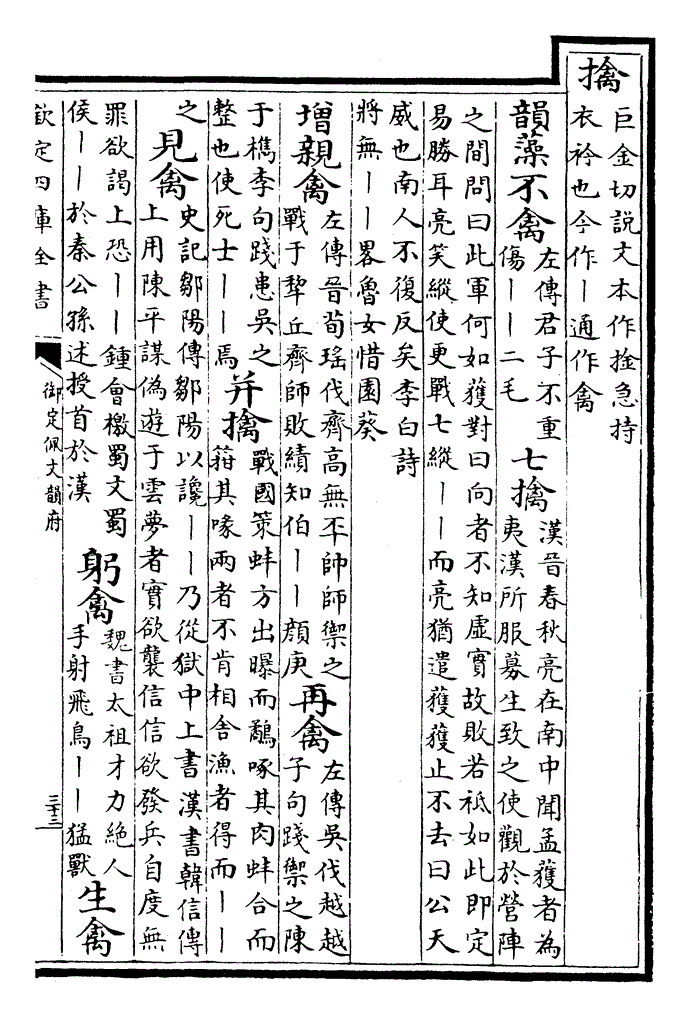 擒
巨金切說文本作捡急持
衣衿也今作丨通作禽
韻藻不禽
左傳君子不重
傷丨丨二毛
七擒
漢晉春秋亮在南中聞孟獲者為
夷漢所服募生致之使觀於營陣
之間問曰此軍何如獲對曰向者不知虛實故敗若祗如此即定
易勝耳亮笑縱使更戰七縱丨丨而亮猶遣獲獲止不去曰公天
威也南人不復反矣李白詩
將無丨丨畧魯女惜園葵
增親禽
左傳晉荀瑤伐齊高無㔻帥師禦之
戰于犂丘齊師敗績知伯丨丨顏庚
再禽
左傳吳伐越越
子句踐禦之陳
于檇李句踐患吳之
整也使死士丨丨焉
并擒
戰國策蚌方出曝而鷸啄其肉蚌合而
箝其喙兩者不肯相舍漁者得而丨丨
之
見禽
史記鄒陽傳鄒陽以讒丨丨乃從獄中上書漢書韓信傳
上用陳平謀偽遊于雲夢者實欲襲信信欲發兵自度無
罪欲謁上恐丨丨鍾會檄蜀文蜀
侯丨丨於秦公孫述授首於漢
躬禽
魏書太祖才力絕人
手射飛鳥丨丨猛獸
生禽
欽定四庫全書
御定佩文韻府
三十三